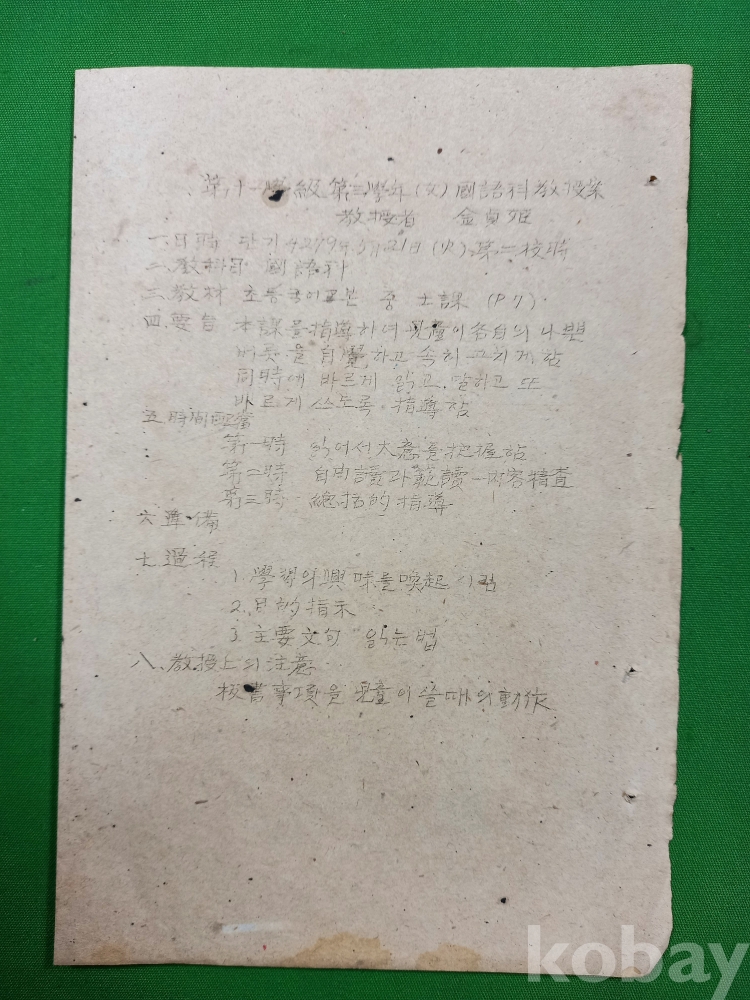 第十一學級 第三學年 (女) 國語科 敎授案
敎授者 金貞姬
一. 日時 단기 4279年 5月21日 (火) 第二校時
二. 敎科目 國語科
三. 敎材 초등국어교본 중 十課 (P 7)
四. 要旨 本課를 指導하여 兒童이 各自의 나쁜
버릇을 自覺하고 속히 그치게 함
同時에 바르게 읽고, 말하고 또
바르게 쓰도록 指導함
五. 時間配當
第一時 읽어서 大意를 把握함
第二時 自由讀과 範讀 — 內容精査
第三時 總括的 指導
六. 準備
七. 過程
1. 學習의 興味를 喚起시킴
2. 目的指示
3. 主要文句 읽는 법
八. 敎授上의 注意
板書事項을 兒童이 쓸때의 動作
kobay